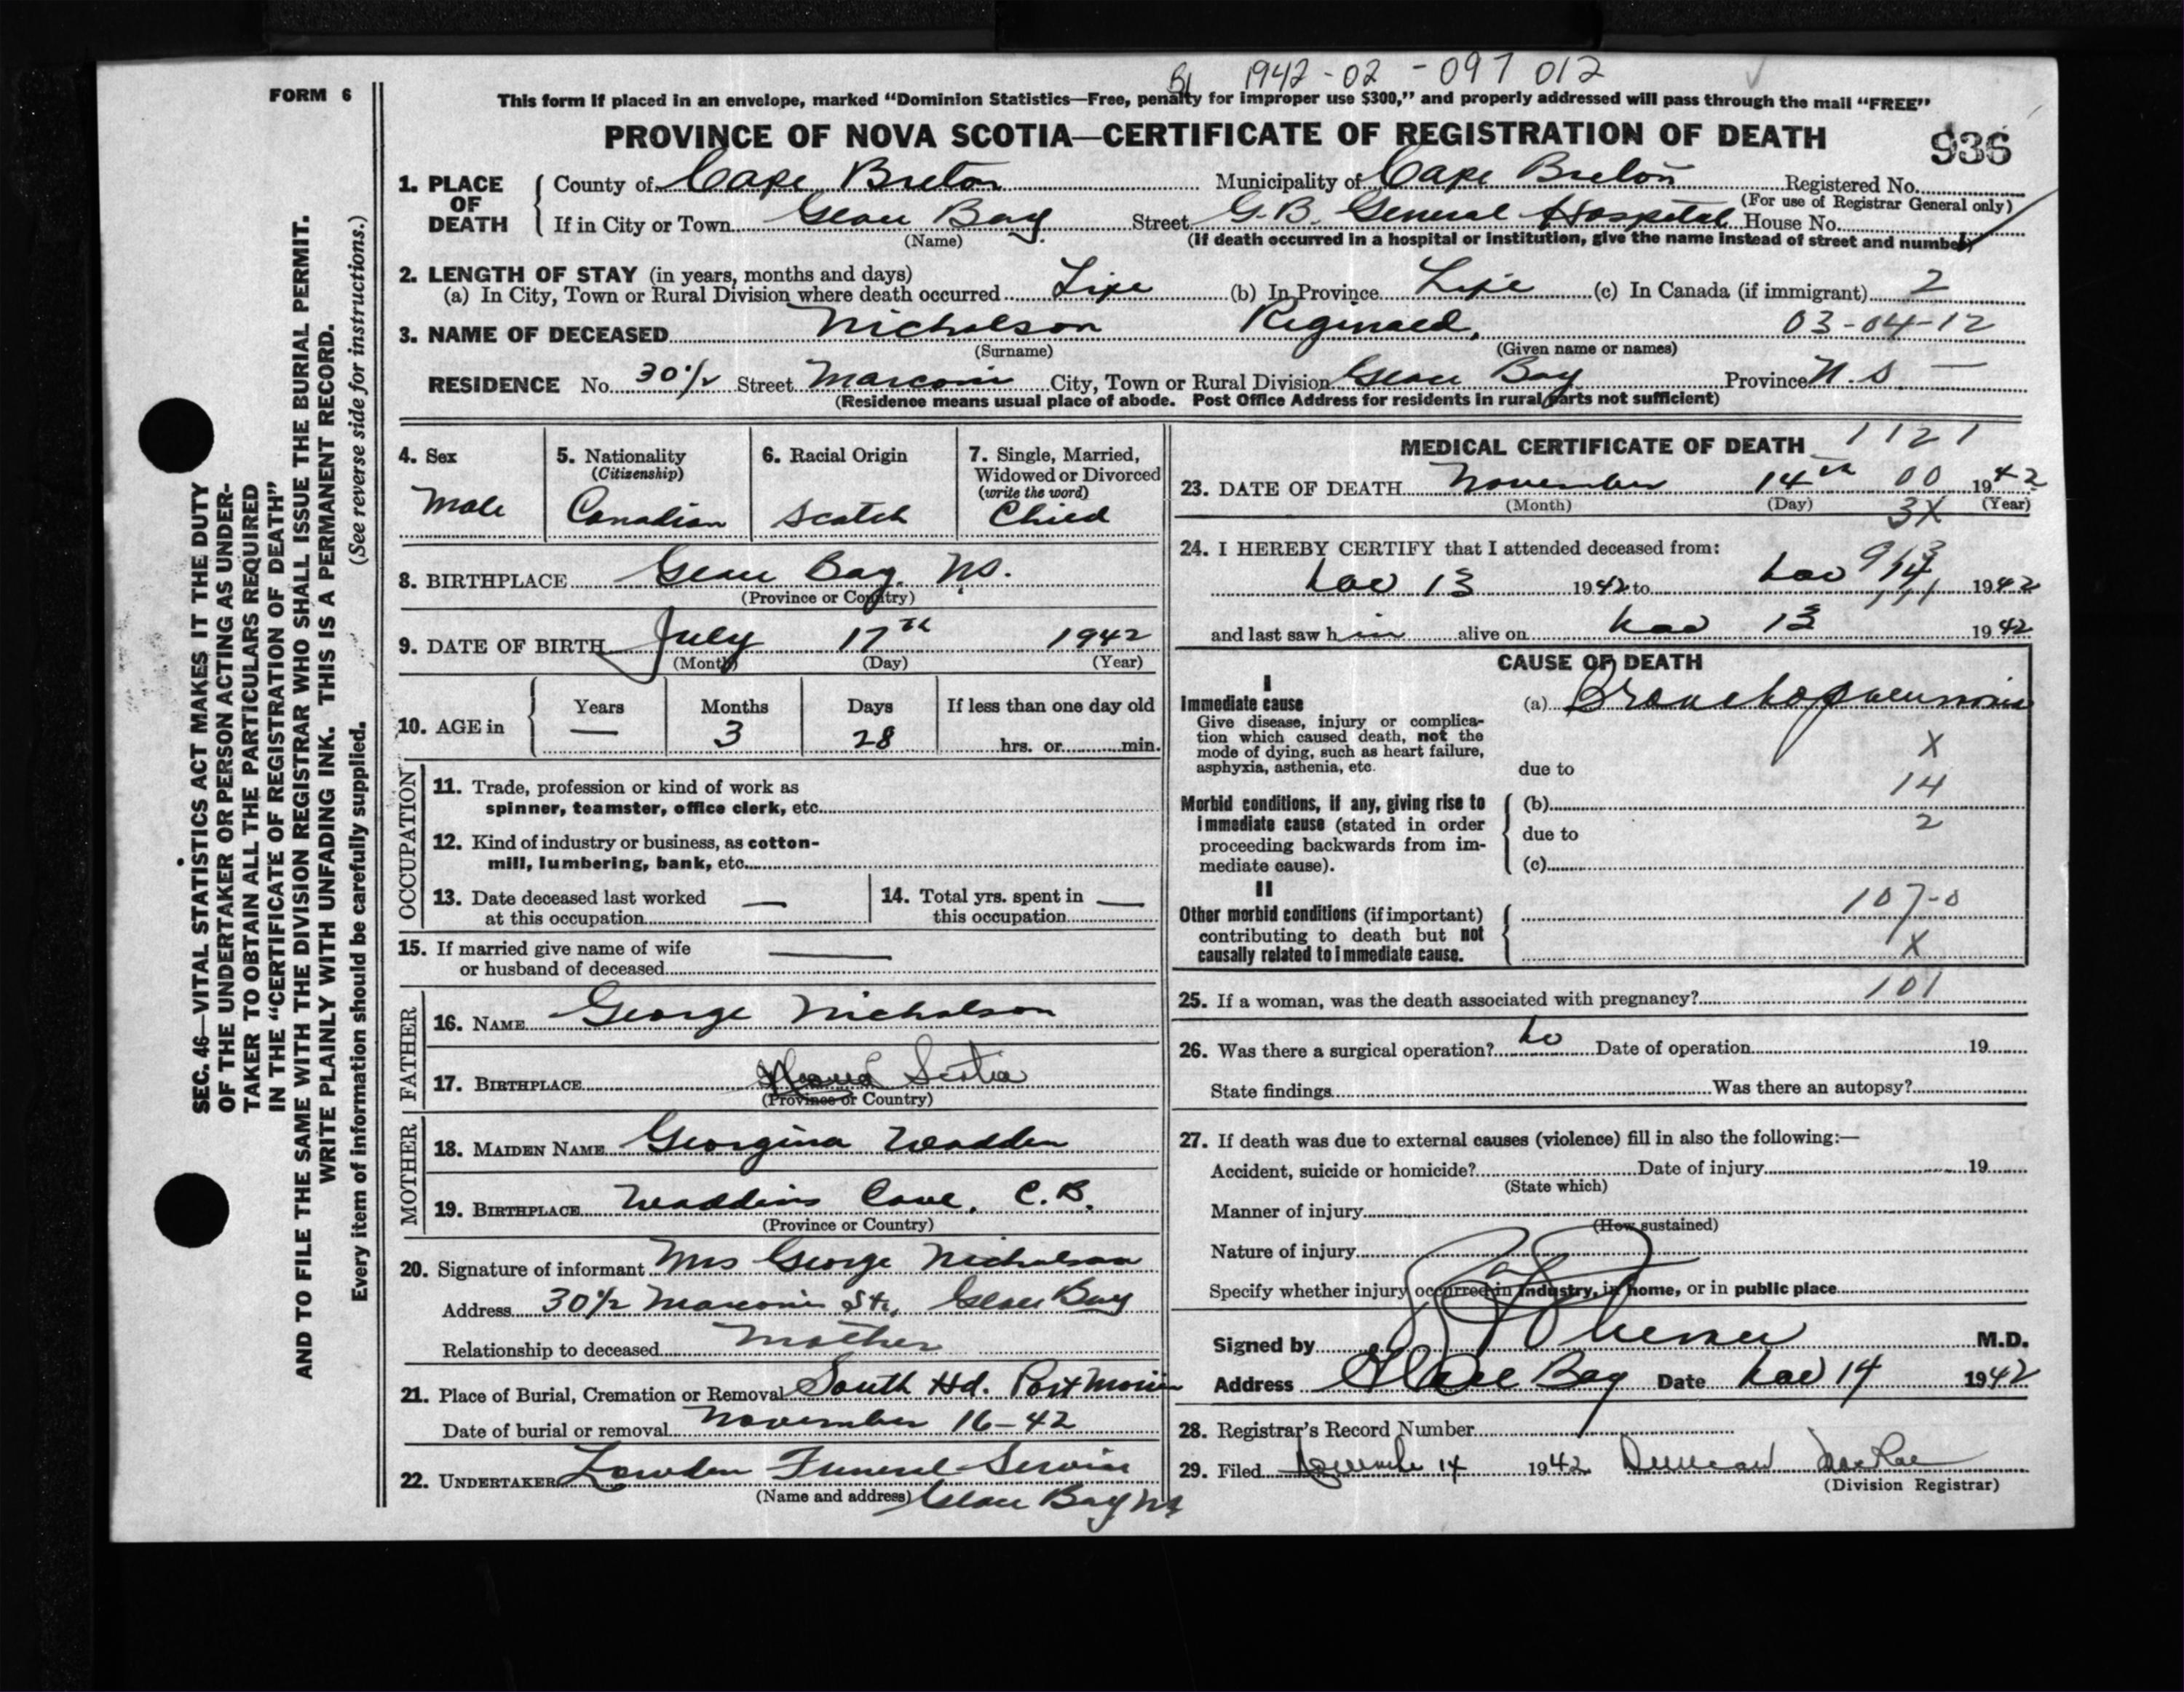 1942-02-097012
FORM 6
This form if placed in an envelope, marked “Dominion Statistics—Free, penalty for improper use $300,” and properly addressed will pass through the mail “FREE”
PROVINCE OF NOVA SCOTIA—CERTIFICATE OF REGISTRATION OF DEATH
936
1. PLACE OF DEATH
County of Cape Breton Municipality of Cape Breton Registered No.
(For use of Registrar General only)
If in City or Town Glace Bay Street G.B. General Hospital House No.
(Name) (If death occurred in a hospital or institution, give the name instead of street and number)
2. LENGTH OF STAY (in years, months and days)
(a) In City, Town or Rural Division where death occurred Life (b) In Province Life (c) In Canada (if immigrant) 2
3. NAME OF DECEASED Nicholson Reginald, 03-04-12
(Surname) (Given name or names)
RESIDENCE No. 30½ Street Marconi City, Town or Rural Division Glace Bay Province N.S. —
(Residence means usual place of abode. Post Office Address for residents in rural parts not sufficient)
4. Sex
Male
5. Nationality
(Citizenship)
Canadian
6. Racial Origin
Scotch
7. Single, Married,
Widowed or Divorced
(write the word)
Child
8. BIRTHPLACE Glace Bay. NS.
(Province or Country)
9. DATE OF BIRTH July 17th 1942
(Month) (Day) (Year)
10. AGE in
Years Months Days If less than one day old
— 3 28 hrs. or min.
OCCUPATION
11. Trade, profession or kind of work as
spinner, teamster, office clerk, etc.
12. Kind of industry or business, as cotton-
mill, lumbering, bank, etc.
13. Date deceased last worked —
at this occupation
14. Total yrs. spent in —
this occupation
15. If married give name of wife —
or husband of deceased
FATHER
16. NAME George Nicholson
17. BIRTHPLACE Nova Scotia
(Province or Country)
MOTHER
18. MAIDEN NAME Georgina Wadden
19. BIRTHPLACE Waddens Cove, C.B.
(Province or Country)
20. Signature of informant Mrs George Nicholson
Address 30½ Marconi Str, Glace Bay
Relationship to deceased Mother
21. Place of Burial, Cremation or Removal South Hd. Port Morien
Date of burial or removal November 16-42
22. UNDERTAKER Lowden Funeral Service
(Name and address) Glace Bay NS
MEDICAL CERTIFICATE OF DEATH 1121
23. DATE OF DEATH November 14th 00 1942
(Month) (Day) 3X (Year)
24. I HEREBY CERTIFY that I attended deceased from:
Nov 13 1942 to Nov 14 1942
and last saw him alive on Nov 13 1942
CAUSE OF DEATH
I
Immediate cause
Give disease, injury or complica-
tion which caused death, not the
mode of dying, such as heart failure,
asphyxia, asthenia, etc.
(a) Bronchopneumonia
X
due to
14
Morbid conditions, if any, giving rise to
immediate cause (stated in order
proceeding backwards from im-
mediate cause).
(b)
2
due to
(c)
II
Other morbid conditions (if important)
contributing to death but not
causally related to immediate cause.
107-0
X
25. If a woman, was the death associated with pregnancy? 101
26. Was there a surgical operation? No Date of operation 19
State findings Was there an autopsy?
27. If death was due to external causes (violence) fill in also the following:—
Accident, suicide or homicide? Date of injury 19
(State which)
Manner of injury
(How sustained)
Nature of injury
Specify whether injury occurred in industry, in home, or in public place
Signed by M.D.
Address Glace Bay Date Nov 14 1942
28. Registrar's Record Number
29. Filed November 14 1942 Duncan MacRae
(Division Registrar)
SEC. 46—VITAL STATISTICS ACT MAKES IT THE DUTY
OF THE UNDERTAKER OR PERSON ACTING AS UNDER-
TAKER TO OBTAIN ALL THE PARTICULARS REQUIRED
IN THE “CERTIFICATE OF REGISTRATION OF DEATH”
AND TO FILE THE SAME WITH THE DIVISION REGISTRAR WHO SHALL ISSUE THE BURIAL PERMIT.
WRITE PLAINLY WITH UNFADING INK. THIS IS A PERMANENT RECORD.
Every item of information should be carefully supplied. (See reverse side for instructions.)